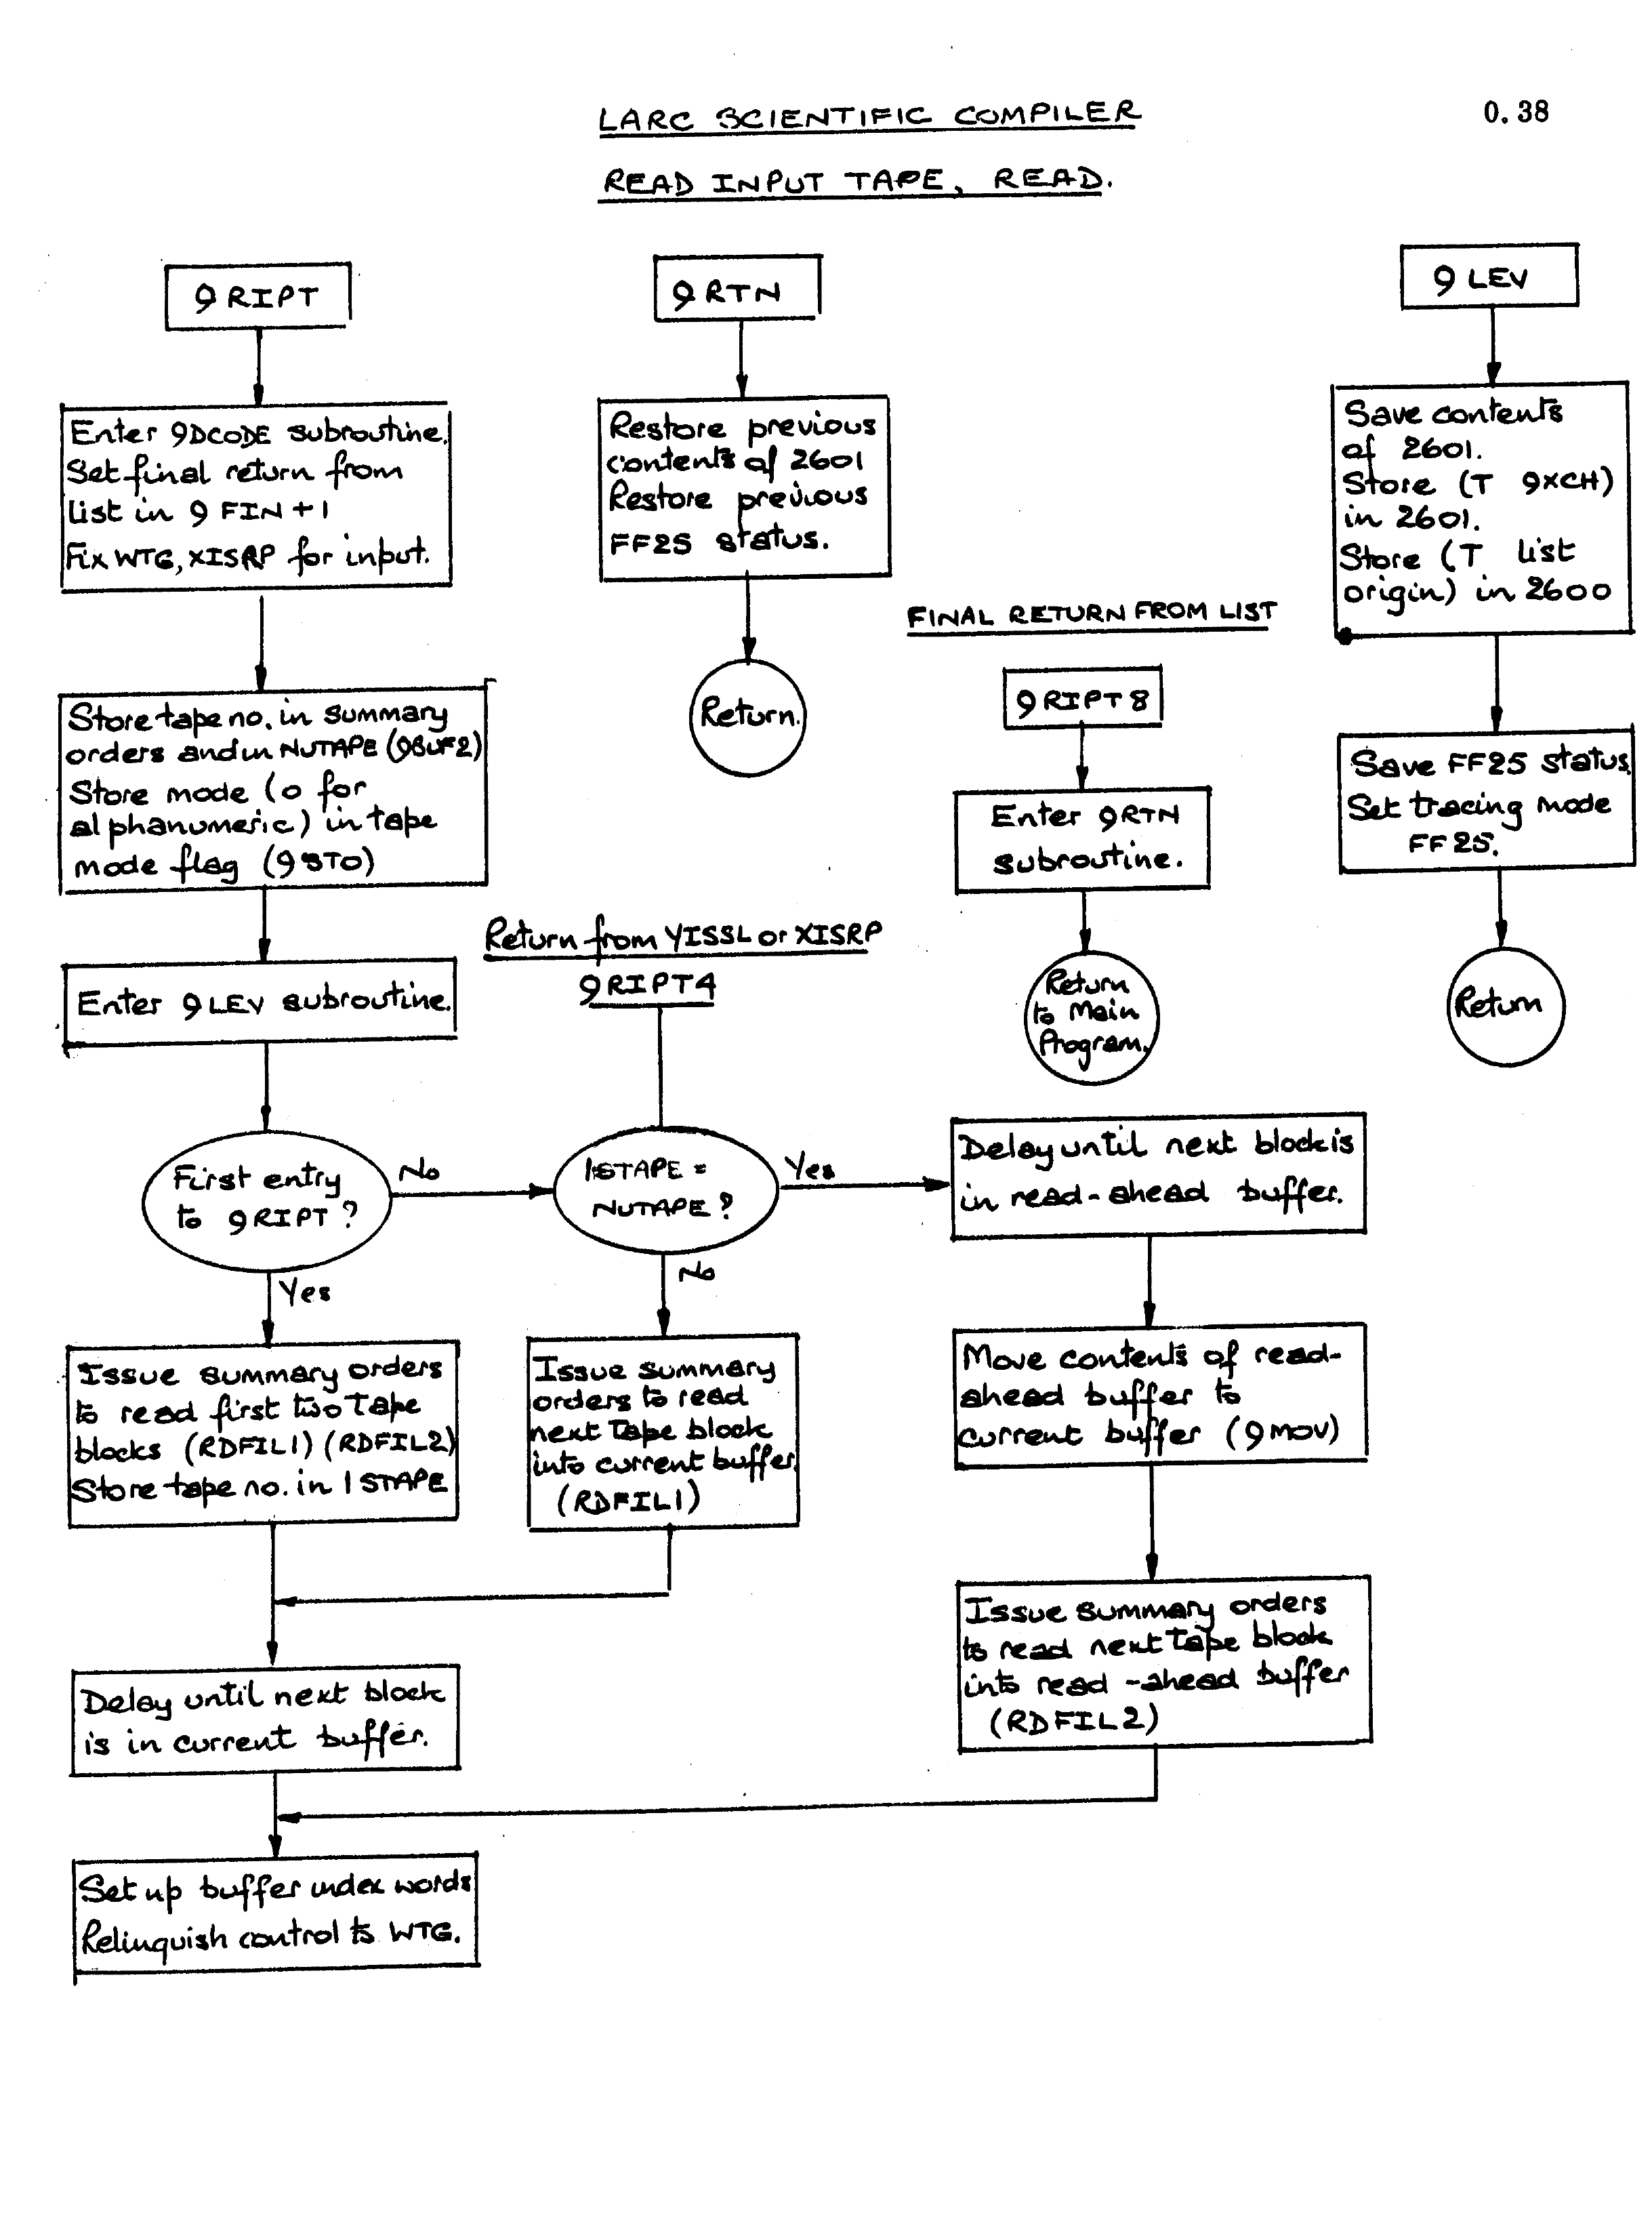 LARC SCIENTIFIC COMPILER
0.38
READ INPUT TAPE, READ.
9RIPT
Enter 9DCODE subroutine.
Set final return from
list in 9FIN+1
Fix WTG, XISRP for input.
Store tape no. in summary
orders and in NUTAPE (9BUF2)
Store mode (0 for
alphanumeric) in tape
mode flag (9STO)
Enter 9LEV subroutine.
First entry
to 9RIPT?
No
Yes
Issue summary orders
to read first two Tape
blocks (RDFIL1) (RDFIL2)
Store tape no. in 1STAPE
Delay until next block
is in current buffer.
Set up buffer index words
Relinquish control to WTG.
9RTN
Restore previous
contents of 2601
Restore previous
FF25 status.
Return.
Return from YISSL or XISRP
9RIPT4
1STAPE =
NUTAPE?
Yes
No
Issue summary
orders to read
next Tape block
into current buffer.
(RDFIL1)
FINAL RETURN FROM LIST
9RIPT8
Enter 9RTN
subroutine.
Return
to Main
Program.
Delay until next block is
in read-ahead buffer.
Move contents of read-
ahead buffer to
current buffer (9MOV)
Issue summary orders
to read next Tape block
into read-ahead buffer
(RDFIL2)
9LEV
Save contents
of 2601.
Store (T 9XCH)
in 2601.
Store (T list
origin) in 2600
Save FF25 status.
Set tracing mode
FF25.
Return